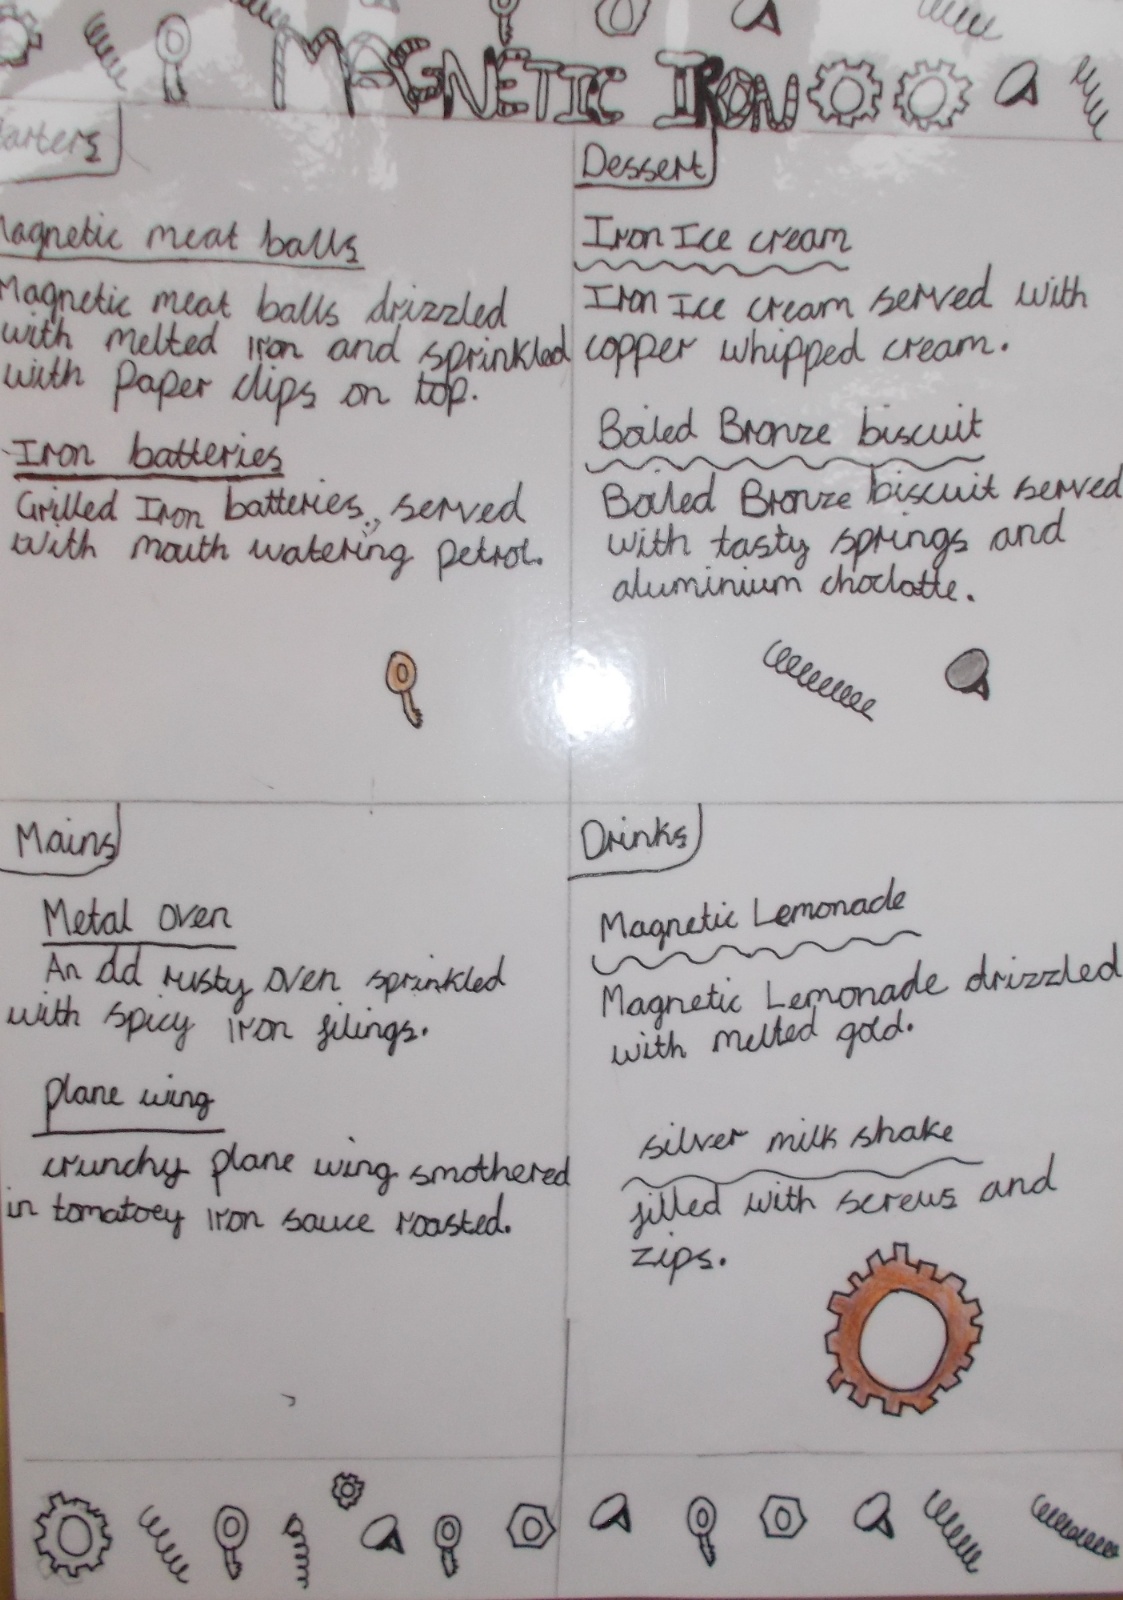 MAGNETIC IRON
Starters
Magnetic meat balls
Magnetic meat balls drizzled
with melted iron and sprinkled
with paper clips on top.
Iron batteries
Grilled Iron batteries, served
with mouth watering petrol.
Dessert
Iron Ice cream
Iron Ice cream served with
copper whipped cream.
Boiled Bronze biscuit
Boiled Bronze biscuit served
with tasty springs and
aluminium choclatte.
Mains
Metal oven
An old rusty oven sprinkled
with spicy iron filings.
plane wing
crunchy plane wing smothered
in tomatoey iron sauce roasted.
Drinks
Magnetic Lemonade
Magnetic Lemonade drizzled
with melted gold.
silver milk shake
filled with screws and
zips.